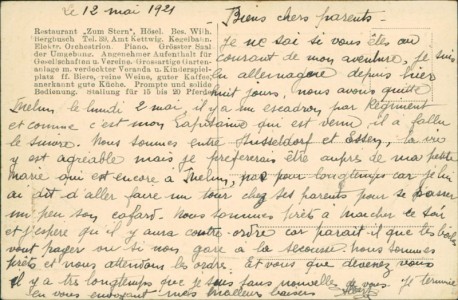 Le 12 mai 1921
Biens chers parents.
Restaurant „Zum Stern", Hösel. Bes. Wilh.
Bergbusch. Tel. 39, Amt Kettwig. Kegelbahn.
Elektr. Orchestrion. Piano. Grösster Saal
der Umgebung. Angenehmer Aufenthalt für
Gesellschaften u. Vereine. Grossartige Garten-
anlage m. verdeckter Veranda u. Kinderspiel-
platz ff. Biere, reine Weine, guter Kaffee,
anerkannt gute Küche. Prompte und solide
Bedienung. Stallung für 15 bis 20 Pferde
Je ne sai si vous êtes au
courant de mon aventure, je suis
en allemagne depuis hier
huit jours, nous avons quitté
Melun le lundi 2 mai, il y a un escadron par Régiment
et comme c'est mon Capitaine qui est venu il a fallu
le suivre. Nous sommes entre Dusseldorf et Essen, la vie
y est agréable mais je préfererais être auprès de ma petite
Marie qui est encore à Melun, pas pour longtemps car je lui
ai dit d'aller faire un tour chez ses parents pour se passer
un peu son cafard. Nous sommes prêts à marcher le soi
et j'espère qu'il y aura contre-ordre car parait il que les
vont payer ou si non gare à la secousse. Nous sommes
prêts et nous attendons les ordre. Et vous que devenez vous
Il y a très longtemps que je suis sans nouvelle de vous. Je termine
en vous envoyant mes meilleurs baisers